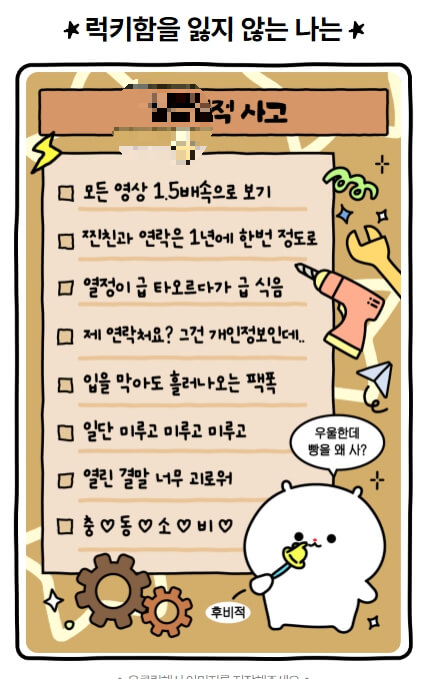 ★ 럭키함을 잃지 않는 나는 ★
적 사고
모든 영상 1.5배속으로 보기
찐친과 연락은 1년에 한번 정도로
열정이 급 타오르다가 급 식음
제 연락처요? 그건 개인정보인데..
입을 막아도 흘러나오는 팩폭
일단 미루고 미루고 미루고
열린 결말 너무 괴로워
충♡동♡소♡비♡
우울한데
빵을 왜 사?
후비적